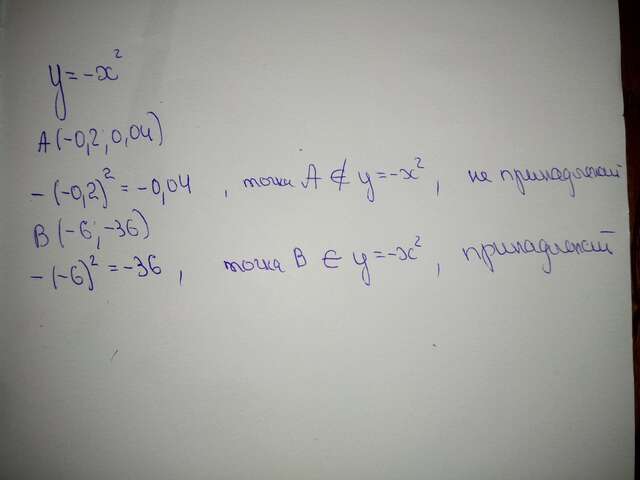 y = -x²
A(-0,2; 0,04)
-(-0,2)² = -0,04 , точка A ∉ y = -x² , не принадлежит
B(-6; -36)
-(-6)² = -36 , точка B ∈ y = -x² , принадлежит